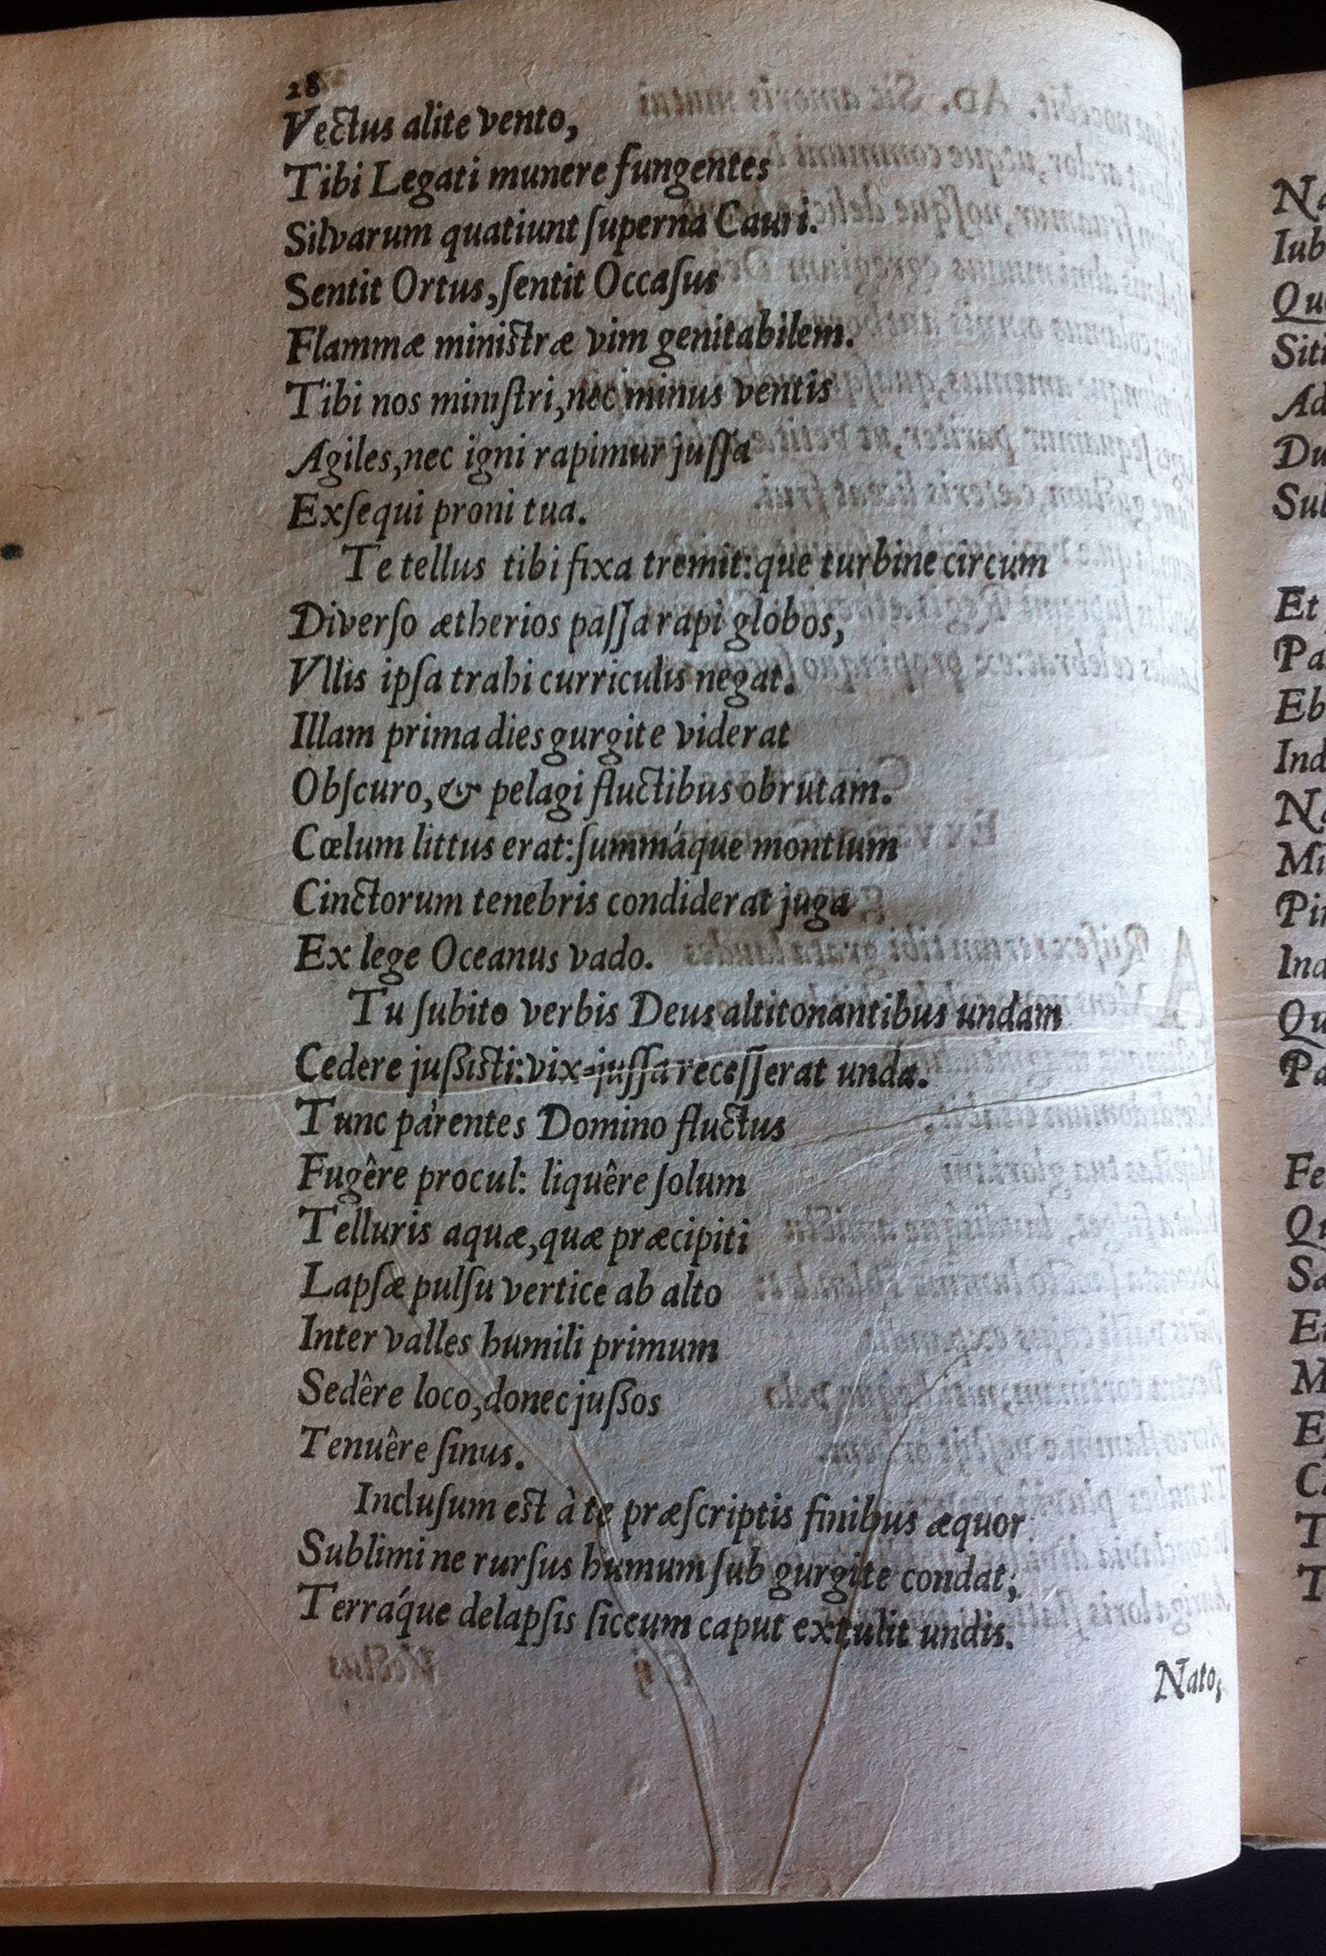 28
Vectus alite vento,
Tibi Legati munere fungentes
Silvarum quatiunt ſuperna Cauri.
Sentit Ortus, ſentit Occaſus
Flammæ miniſtræ vim genitabilem.
Tibi nos miniſtri, nec minus ventis
Agiles, nec igni rapimur juſſa
Exſequi proni tua.
Te tellus tibi fixa tremit: que turbine circum
Diverſo ætherios paſſa rapi globos,
Vllis ipſa trahi curriculis negat.
Illam prima dies gurgite viderat
Obſcuro, & pelagi fluctibus obrutam.
Cœlum littus erat: ſummáque montium
Cinctorum tenebris condiderat juga
Ex lege Oceanus vado.
Tu ſubito verbis Deus altitonantibus undam
Cedere juſsiſti: vix-juſſa receſſerat unda.
Tunc parentes Domino fluctus
Fugêre procul: liquêre ſolum
Telluris aquæ, quæ præcipiti
Lapſæ pulſu vertice ab alto
Inter valles humili primum
Sedêre loco, donec juſsos
Tenuêre ſinus.
Incluſum eſt à te præſcriptis finibus æquor
Sublimi ne rurſus humum ſub gurgite condat;
Terráque delapſis ſiccum caput extulit undis.
Nato,
Na
Iub
Qu
Siti
Ad
Du
Sul
Et
Pa
Eb
Ind
Na
Mi
Pin
Ind
Qu
Pa
Fe
Qu
Sa
Et
M
E
C
T
T